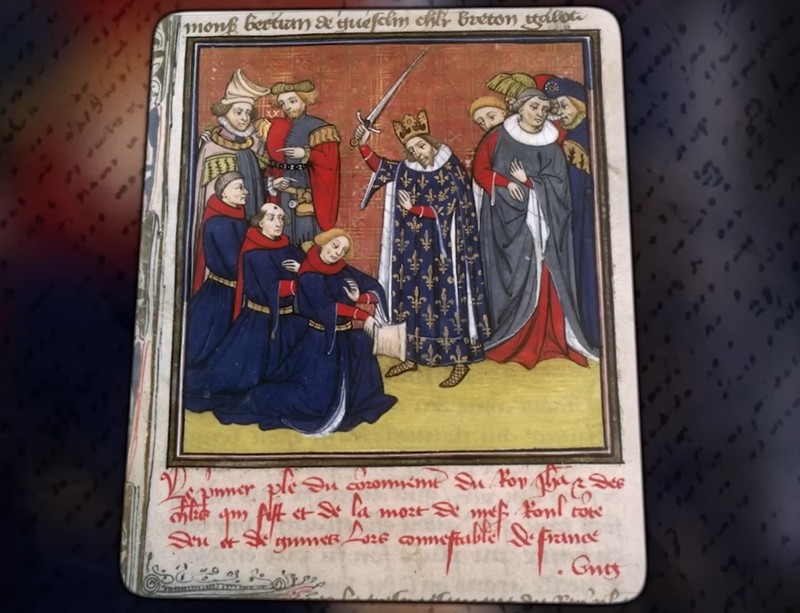 mons bertran de guesclin chlr breton
Le pmier ple du couronnemẽt du Roy Jhã z des
chlrs qui fist et de la mort de mess Roul cõte
deu et de guines Lors connestable de france